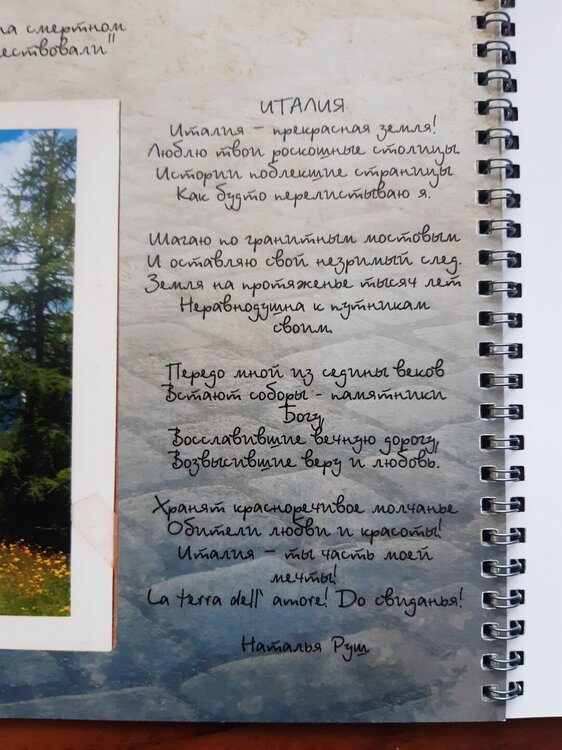 на смертном
ествовали"
ИТАЛИЯ
Италия – прекрасная земля!
Люблю твои роскошные столицы.
Истории поблекшие страницы
Как будто перелистываю я.
Шагаю по гранитным мостовым
И оставляю свой незримый след.
Земля на протяженье тысяч лет
Неравнодушна к путникам
своим.
Передо мной из седины веков
Встают соборы - памятники
Богу,
Восславившие вечную дорогу,
Возвысившие веру и любовь.
Хранят красноречивое молчанье
Обители любви и красоты!
Италия – ты часть моей
мечты!
La terra dell' amore! До свиданья!
Наталья Руш